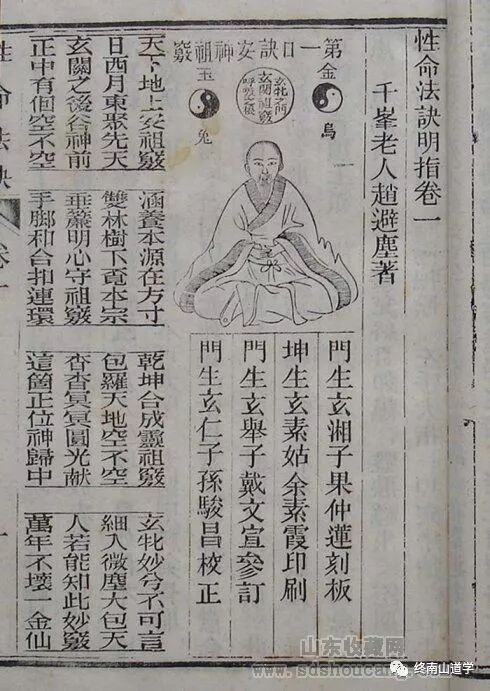 性命法訣明指卷一
千峯老人趙避塵著
第一口訣安神祖竅
金烏
玄牝之門
玄關祖竅
呼吸之根
玉兔
門生玄湘子果仲蓮刻板
坤生玄素姑余素霞印刷
門生玄舉子戴文宣參訂
門生玄仁子孫駿昌校正
天下地上安祖竅
日西月東聚先天
玄關之後谷神前
正中有個空不空
涵養本源在方寸
雙林樹下覓本宗
垂簾明心守祖竅
手脚和合扣連環
乾坤合成靈祖竅
包羅天地空不空
杳杳冥冥圓光獻
這箇正位神歸中
玄牝妙兮不可言
細入微塵大包天
人若能知此妙竅
萬年不壞一金仙
性命法訣
卷一
一
山东收藏网
终南山道学